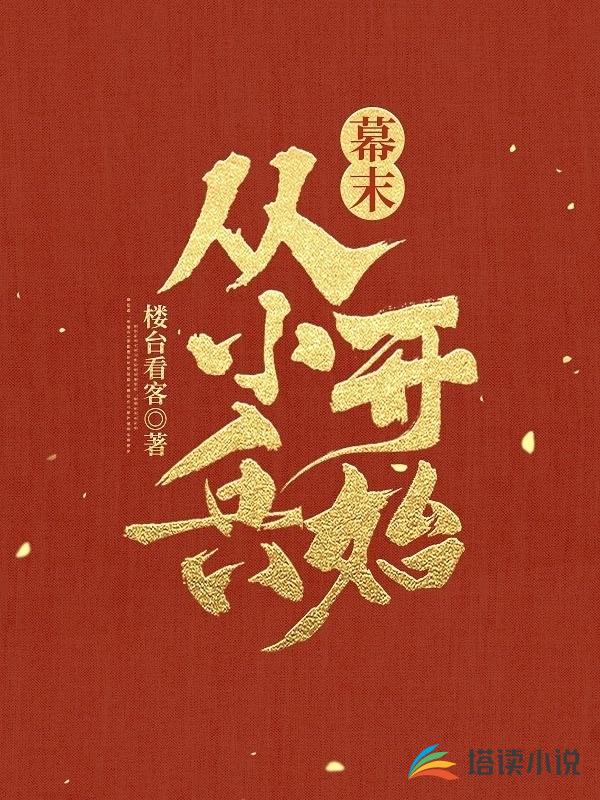 幕末
从小兵
开始
楼台看客◎著
塔读小说